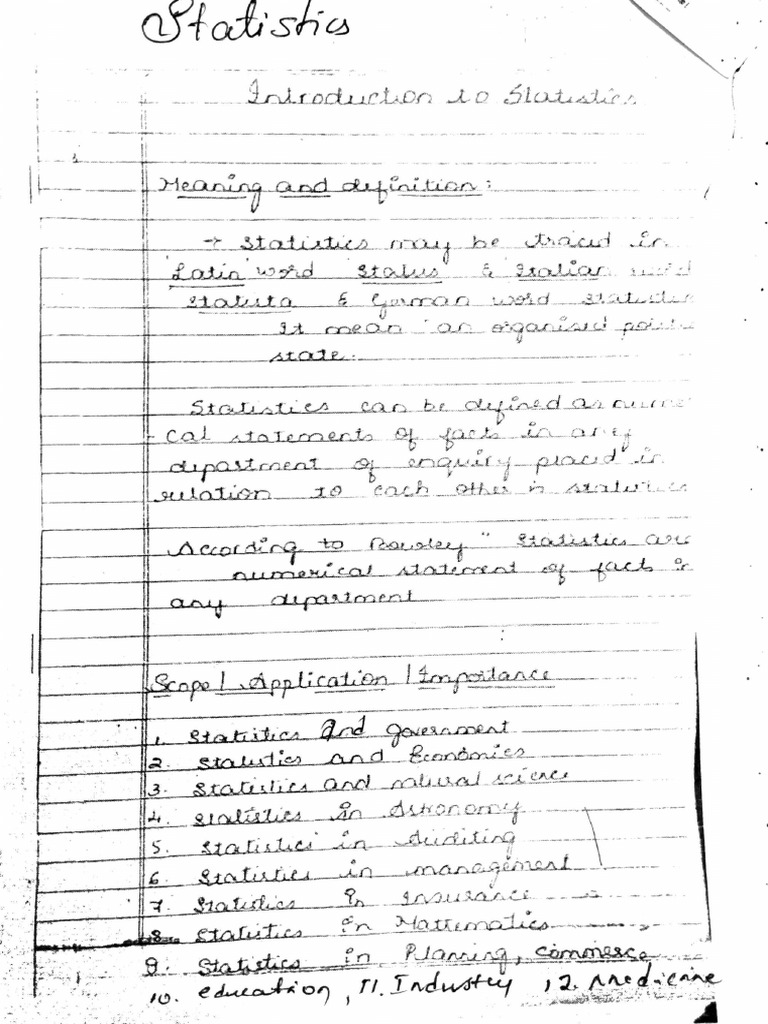 Statistics
Introduction to Statistics
Meaning and definition:
→ Statistics may be traced in
'Latin' word Status & Italian word
Statista & German word
It mean "an organised
state.
Statistics can be defined as nume
- cal statements of facts in any
department of enquiry placed in
relation to each other is
According to Bowley " Statistics are
numerical statement of facts in
any department
Scope / Application / Importance
1. Statistics and government
2. Statistics and Economics
3. Statistics and natural science
4. Statistics in Astronomy
5. Statistics in Auditing
6. Statistics in management
7. Statistics in Insurance
8. Statistics in Mathematics
9. Statistics in Planning, commerce
10. education, 11. Industry, 12. Medicine